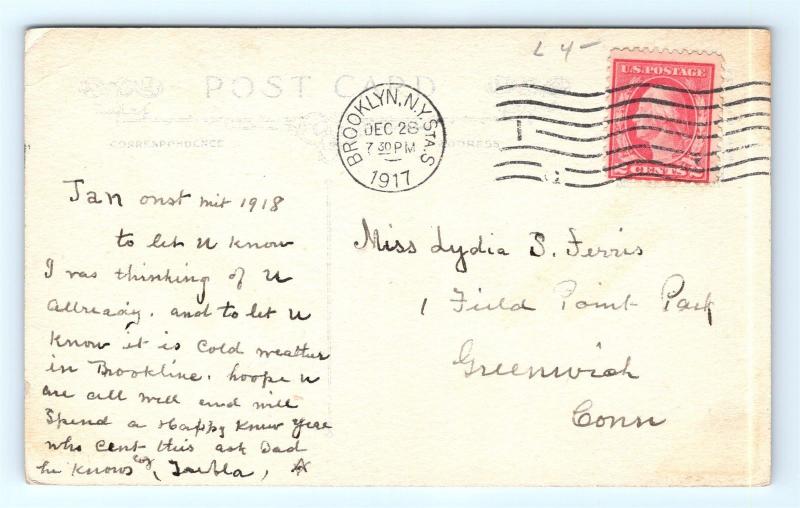 L 4-
POST CARD
CORRESPONDENCE
ADDRESS
BROOKLYN, N.Y. STA. S
DEC 28
7 30 PM
1917
U.S. POSTAGE
2 CENTS 2
Jan onst mit 1918
to let u know
I was thinking of u
allready. and to let u
know it is cold weather
in Brookline. hoope u
are all well end will
Spend a Happy Knew Yeee
who cent this ask Dad
he knows
Miss Lydia S. Ferris
1 Field Point Park
Greenwich
Conn